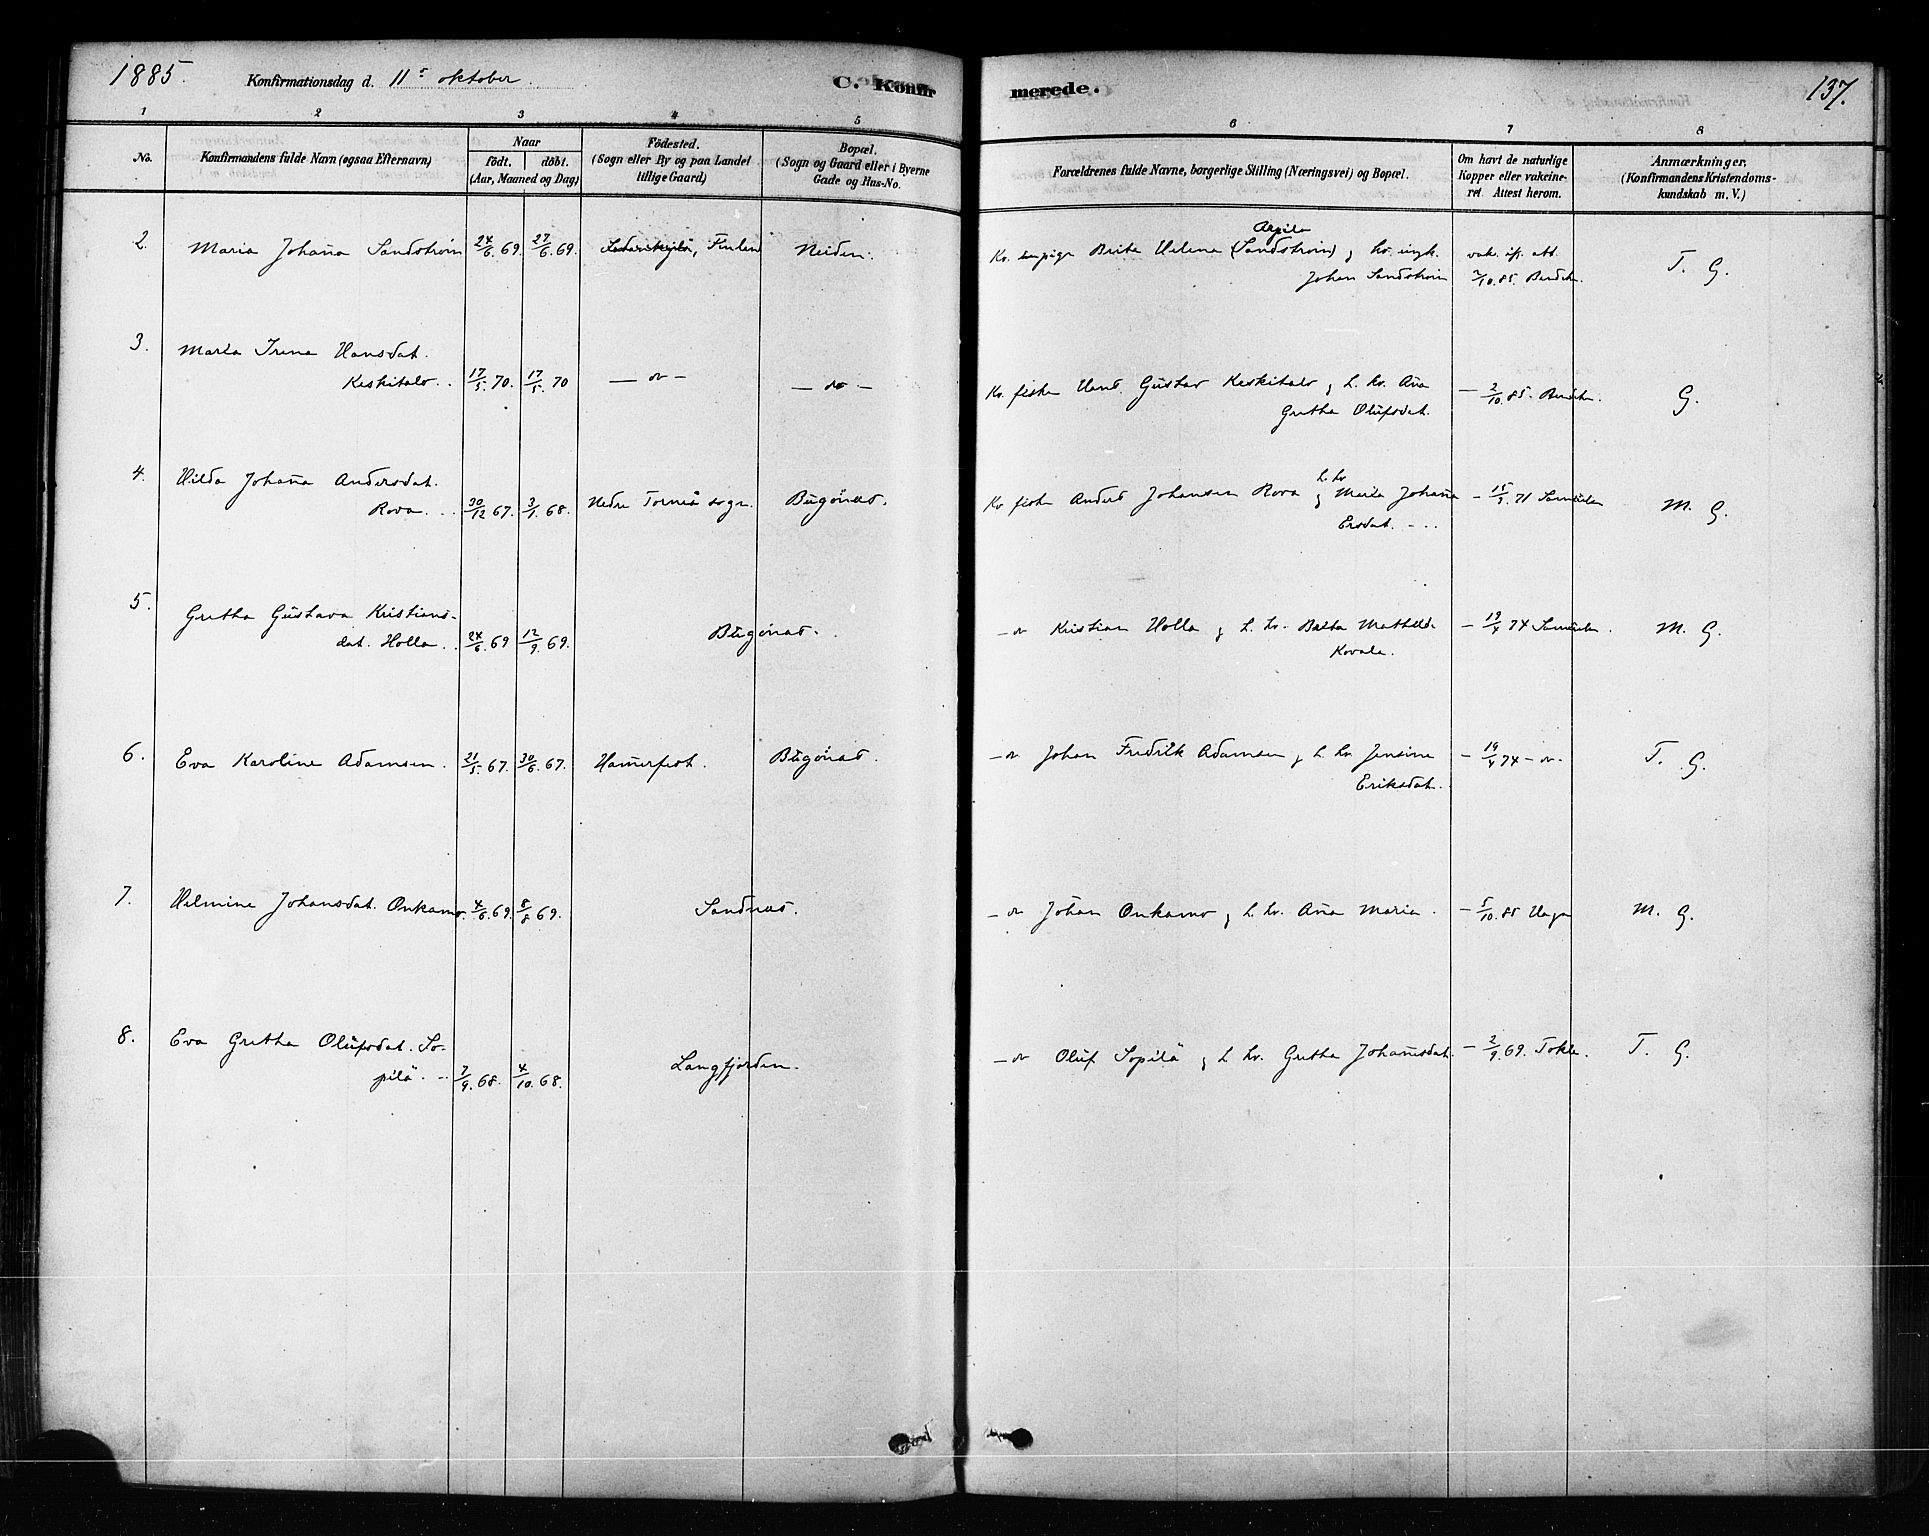 1885. Konfirmationsdag d. 11 s oktober. C. Konfir merede. 137.
1 2 3 4 5 6 7 8
No. Konfirmandens fulde Navn (ogsaa Efternavn)
Naar
født. døbt.
(Aar, Maaned og Dag)
Fødested.
(Sogn eller By og paa Landet
tillige Gaard)
Bopæl.
(Sogn og Gaard eller i Byerne
Gade og Hus-No.
Forældrenes fulde Navne, borgerlige Stilling (Næringsvei) og Bopæl.
Om havt de naturlige
Kopper eller vakcine-
ret. Attest herom.
Anmærkninger.
(Konfirmandens Kristendoms-
kundskab m. V.)
2. Maria Johan̄a Sandström 24/6 69. 27/6 69. Finland Neiden.
Kv. Brita Helena (Sandström) & kv. ungk.
Johan Sandström
vakc. ifl. att.
2/10.85.
T. G.
3. Maria Irena Hansdat.
Keskitalo.. 17/5 70. 17/5 70 — do — — do —
Kv. fisker Hans Gustav Keskitalo & h. kv. An̄a
Gretha Olufsdat.
— 2/10.85.
G.
4. Hilda Johan̄a Andersdat.
Rova... 30/12 67. 3/1. 68. Nedre Torneå sogn. Bugönæs.
Kv. fisker Anders Johansen Rova & h. kv Maria Johan̄a
Ersdat. - ..
- 15/3. 71
M. G.
5. Gretha Gustava Kristians-
dat. Holla.. 24/6. 69 12/9. 69. Bugönæs.
— do Kristian Holla & h. kv. Mathilde
Kovala.
— 19/4 74
M. G.
6. Eva Karoline Adamsen. 21/5. 67. 30/6. 67. Ham̄erfest. Bugönæs.
— do Johan Fredrik Adamsen & h. kv Jensine
Eriksdat.
— 19/4 74 — do.
T. G.
7. Helmine Johansdat. Onkamo. 4/6. 69. 8/8 69. Sandnæs.
— do Johan Onkamo & h. kv. An̄a Maria.
— 5/10.85
M. G.
8. Eva Gretha Olufsdat. So-
pilä. .. 7/9. 68. 4/10. 68. Langfjorden.
— do Oluf Sopilä & h kv. Gretha Johan̄esdat.
— 2/9. 69. Tokle.
T. G.